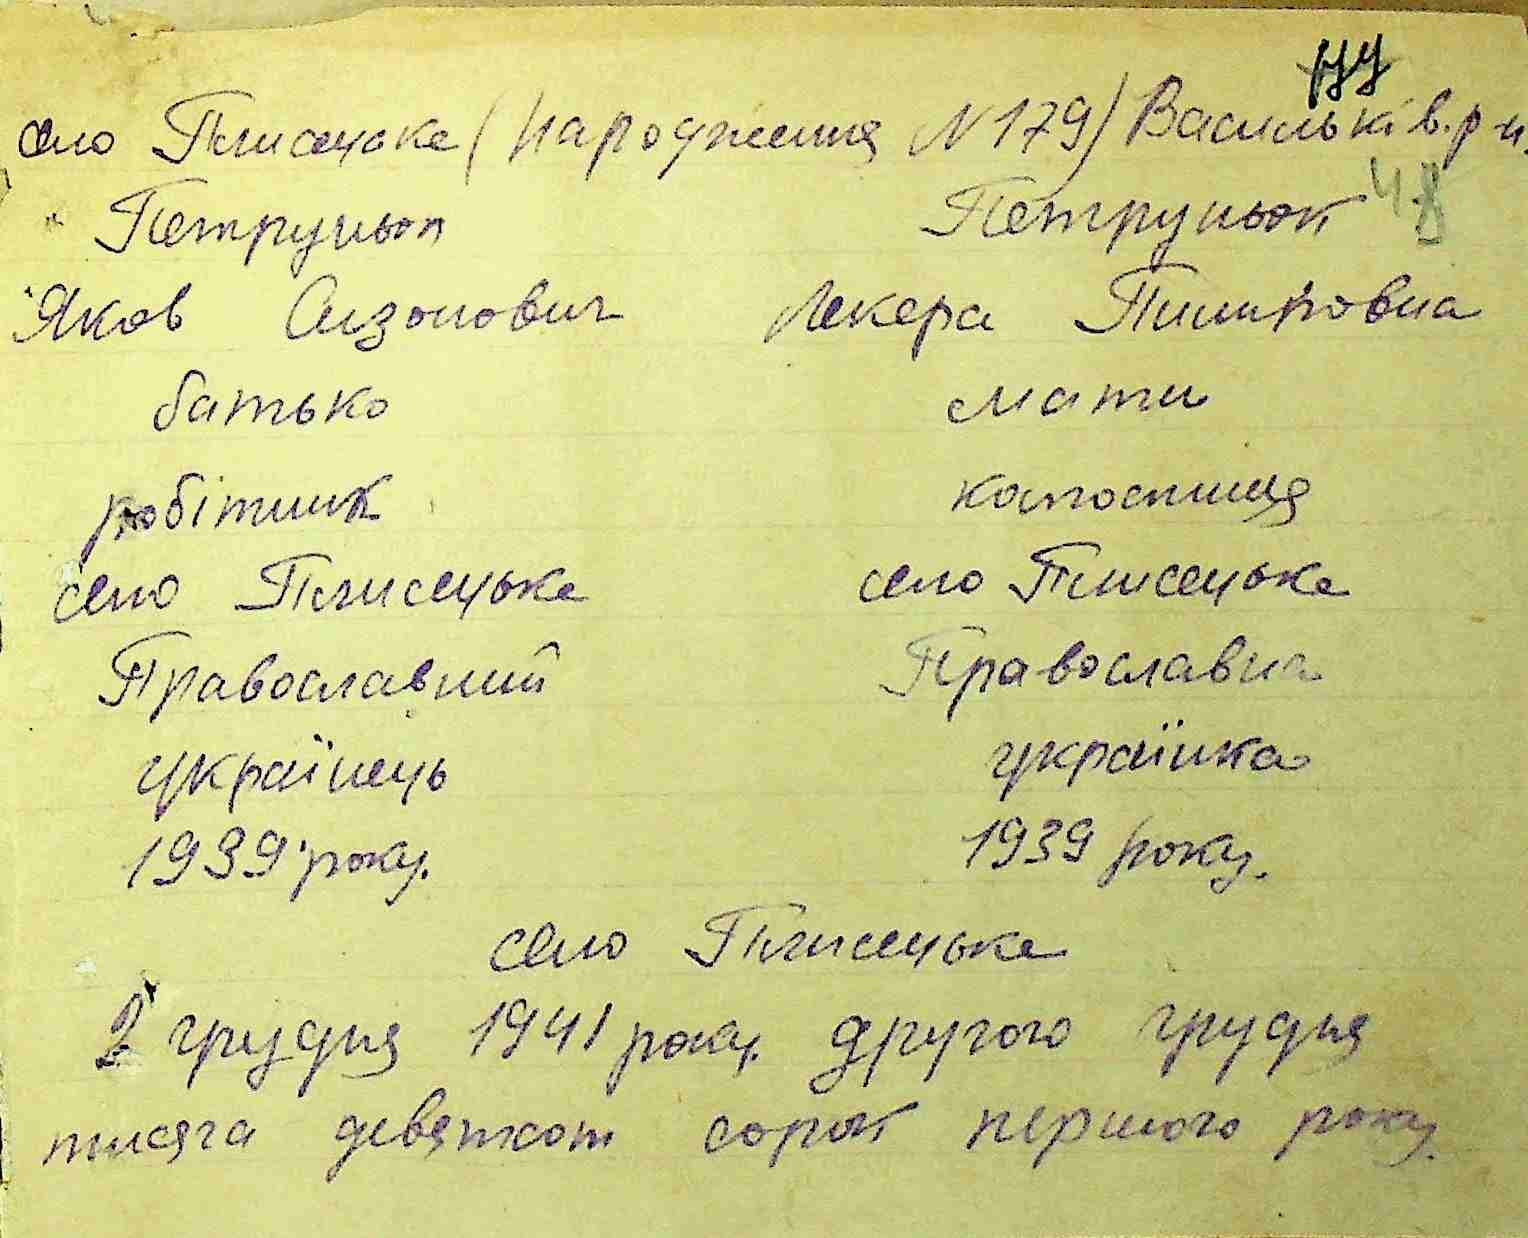 село Плисецьке (народження N 179) Васильків. р-н.
Петруньок Петруньок
Яков Сизонович Лекера Пимковна
батько мати
робітник колгоспниця
село Плисецьке село Плисецьке
Православний Православна
українець українка
1939 року. 1939 року.
село Плисецьке
2 грудня 1941 року. другого грудня
тисяча девятсот сорок першого року.